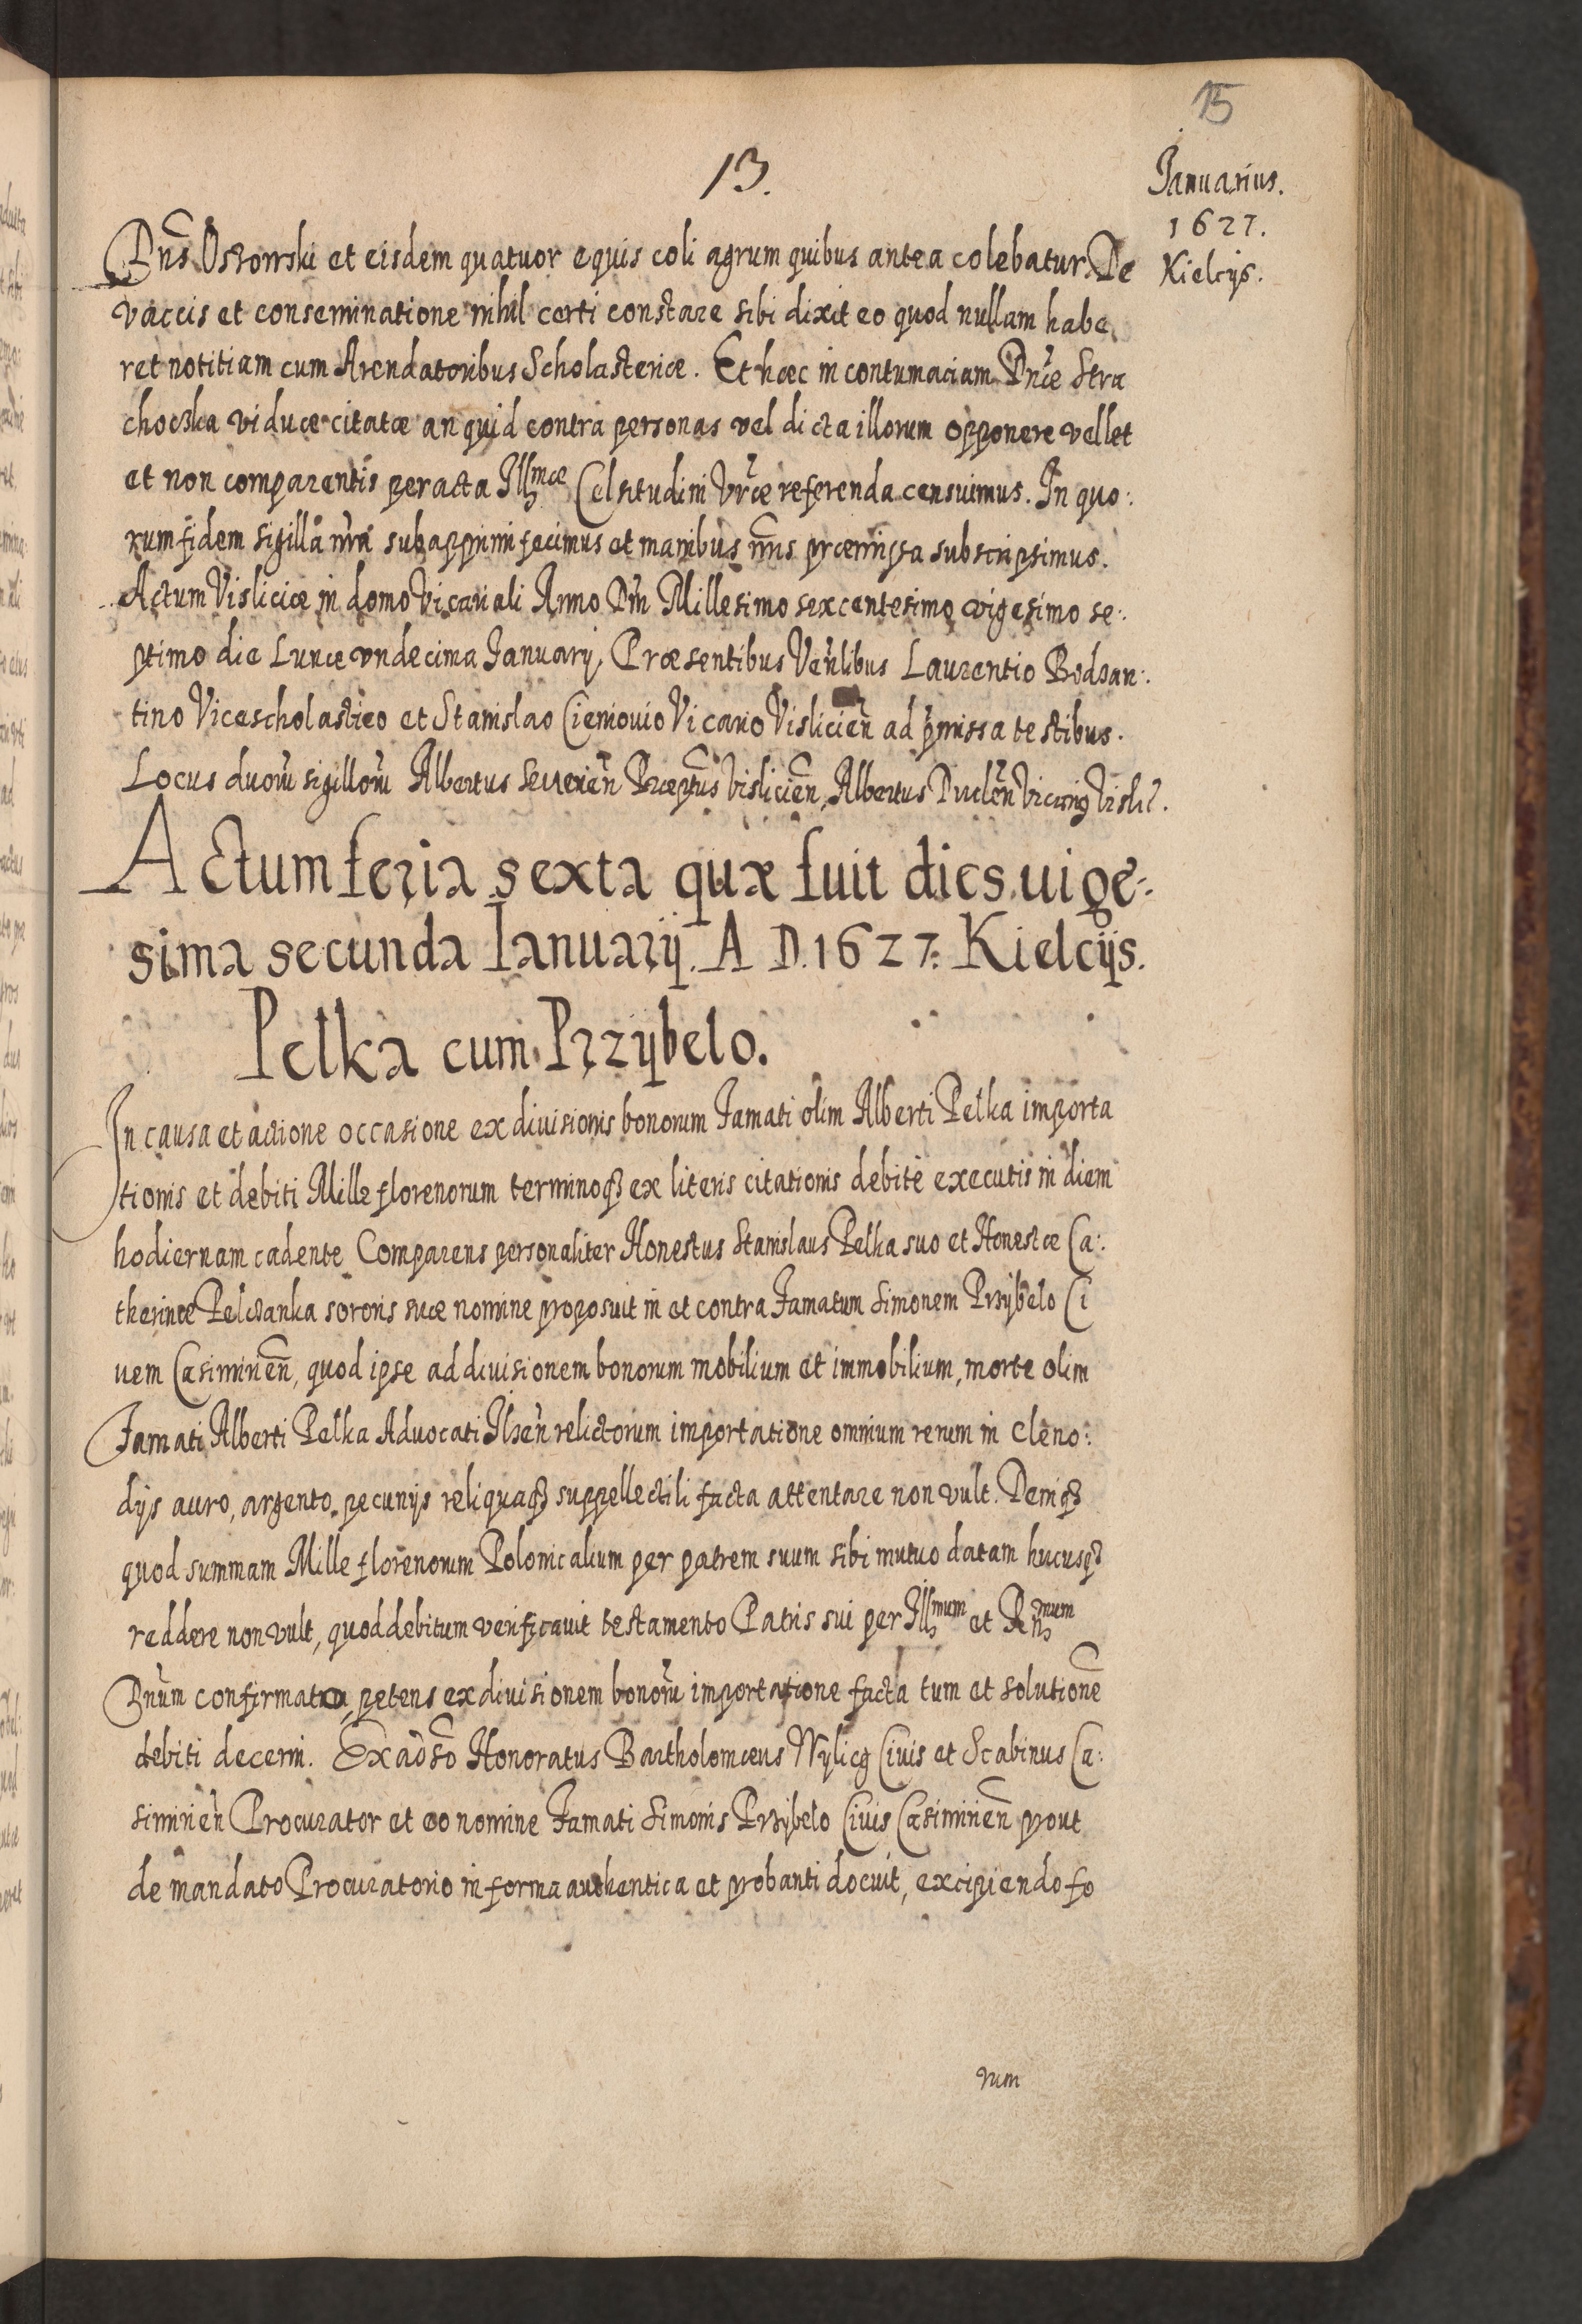 15
13.
Januarius.
1627.
Kielcijs.
Dn̄s Ostowski et eisdem quatuor equis coli agrum quibus antea colebatur. De
vaccis et conseminatione nihil certi constare sibi dixit eo quod nullam habe
ret notitiam cum Arendatoribus Scholasteriæ. Et hæc in contumaciam Dn̄æ Stra
choczka viduæ citatæ an quid contra personas vel dicta illorum opponere vellet
et non comparentis peracta Illmæ Celsitudini Vr̄æ referenda censuimus. In quo:
rum fidem sigilla nr̄a subapprimi fecimus et manibus nr̄is præmissa subscripsimus.
Actum Visliciæ in domo Vicariali Anno Dn̄i Millesimo sexcentesimo vigesimo se:
ptimo die Lunæ undecima Januarij, Præsentibus Ven̄libus Laurentio Bodzan:
tino Vicescholastico et Stanislao Cieniouio Vicario Vislicien̄ ad p̄missa testibus.
Locus duor̄u sigillor̄u Albertus Seuerien̄ Præptūs Vislicien̄, Albertus Duclen̄ Vicariꝰ Visli?.
Actum feria sexta quæ fuit dies uige:
sima secunda Ianuarij. A D. 1627. Kielcijs.
Pelka cum Przÿbelo.
In causa et actione occasione exdiuisionis bonorum Famati olim Alberti Pelka importa
tionis et debiti Mille florenorum terminoqꝫ ex literis citationis debitè executis in diem
hodiernam cadente Comparens personaliter Honestus Stanislaus Pelka suo et Honestæ Ca:
therinæ Pelczanka sororis suæ nomine proposuit in et contra Famatum Simonem Przÿbelo Ci
uem Casimirien̄, quod ipse ad diuisionem bonorum mobilium et immobilium, morte olim
Famati Alberti Pelka Aduocati Ilzen̄ relictorum importatione omnium rerum in cleno:
dijs auro, argento, pecunijs reliquaqꝫ suppellectili facta attentare non vult. Deniqꝫ
quod summam Mille florenorum Polonicalium per patrem suum sibi mutuo datam hucusqꝫ
reddere non vult, quod debitum verificauit testamento Patris sui per Illmum et Rn̄mum
Dn̄um confirmato, petens exdiuisionem bonor̄u importatione facta tum et solutionē
debiti decerni. Ex adso Honoratus Bartholomæus Wylicꝫ Ciuis et Scabinus Ca:
simirien̄ Procurator et eo nomine Famati Simonis Przÿbelo Ciuis Casimirien̄ prout
de mandato Procuratorio in forma authentica et probanti docuit, excipiendo fo
rum